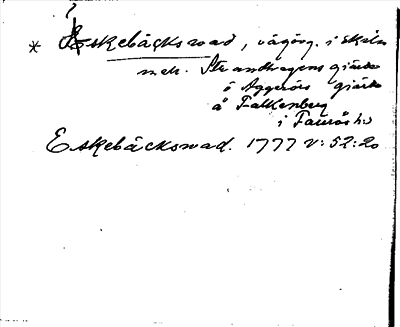 ?
* Eskebäckswad, vägörg. i skiln
mell. Strandhagens giärde
å Aggeröds giärde
å Falkenberg
i Fauräs hd
Eskebäckswad. 1777 V: 52: 20